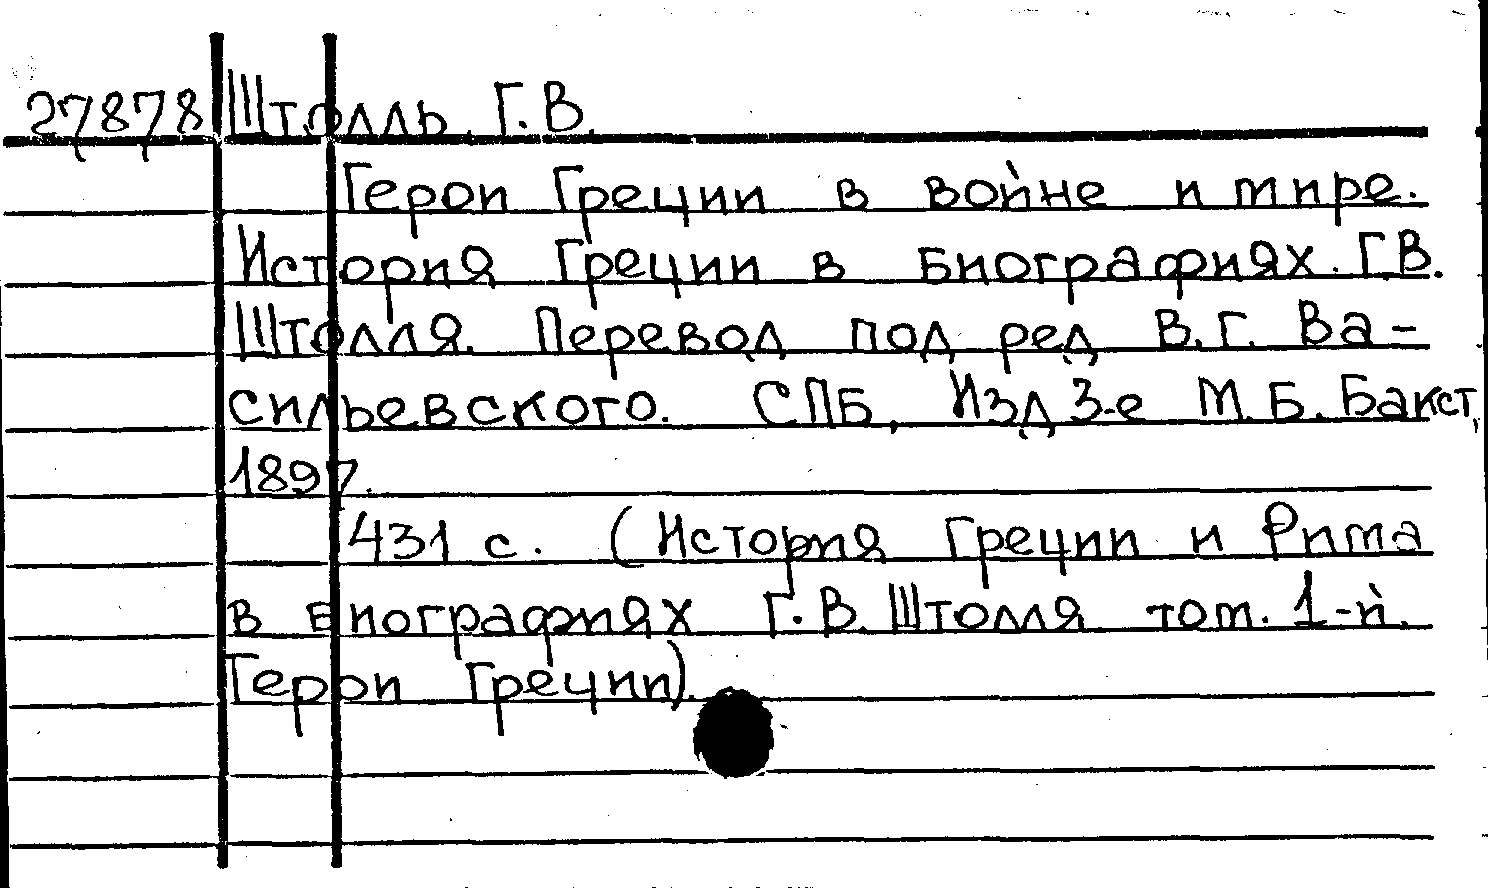 27878 Штолль, Г.В.
Герои Греции в войне и мире.
История Греции в биографиях. Г.В.
Штолля. Перевод под ред В.Г. Ва-
сильевского. СПБ, Изд 3-е М.Б. Бакст,
1897.
431 с. (История Греции и Рима
в биографиях Г.В. Штолля том. 1-й.
Герои Греции).